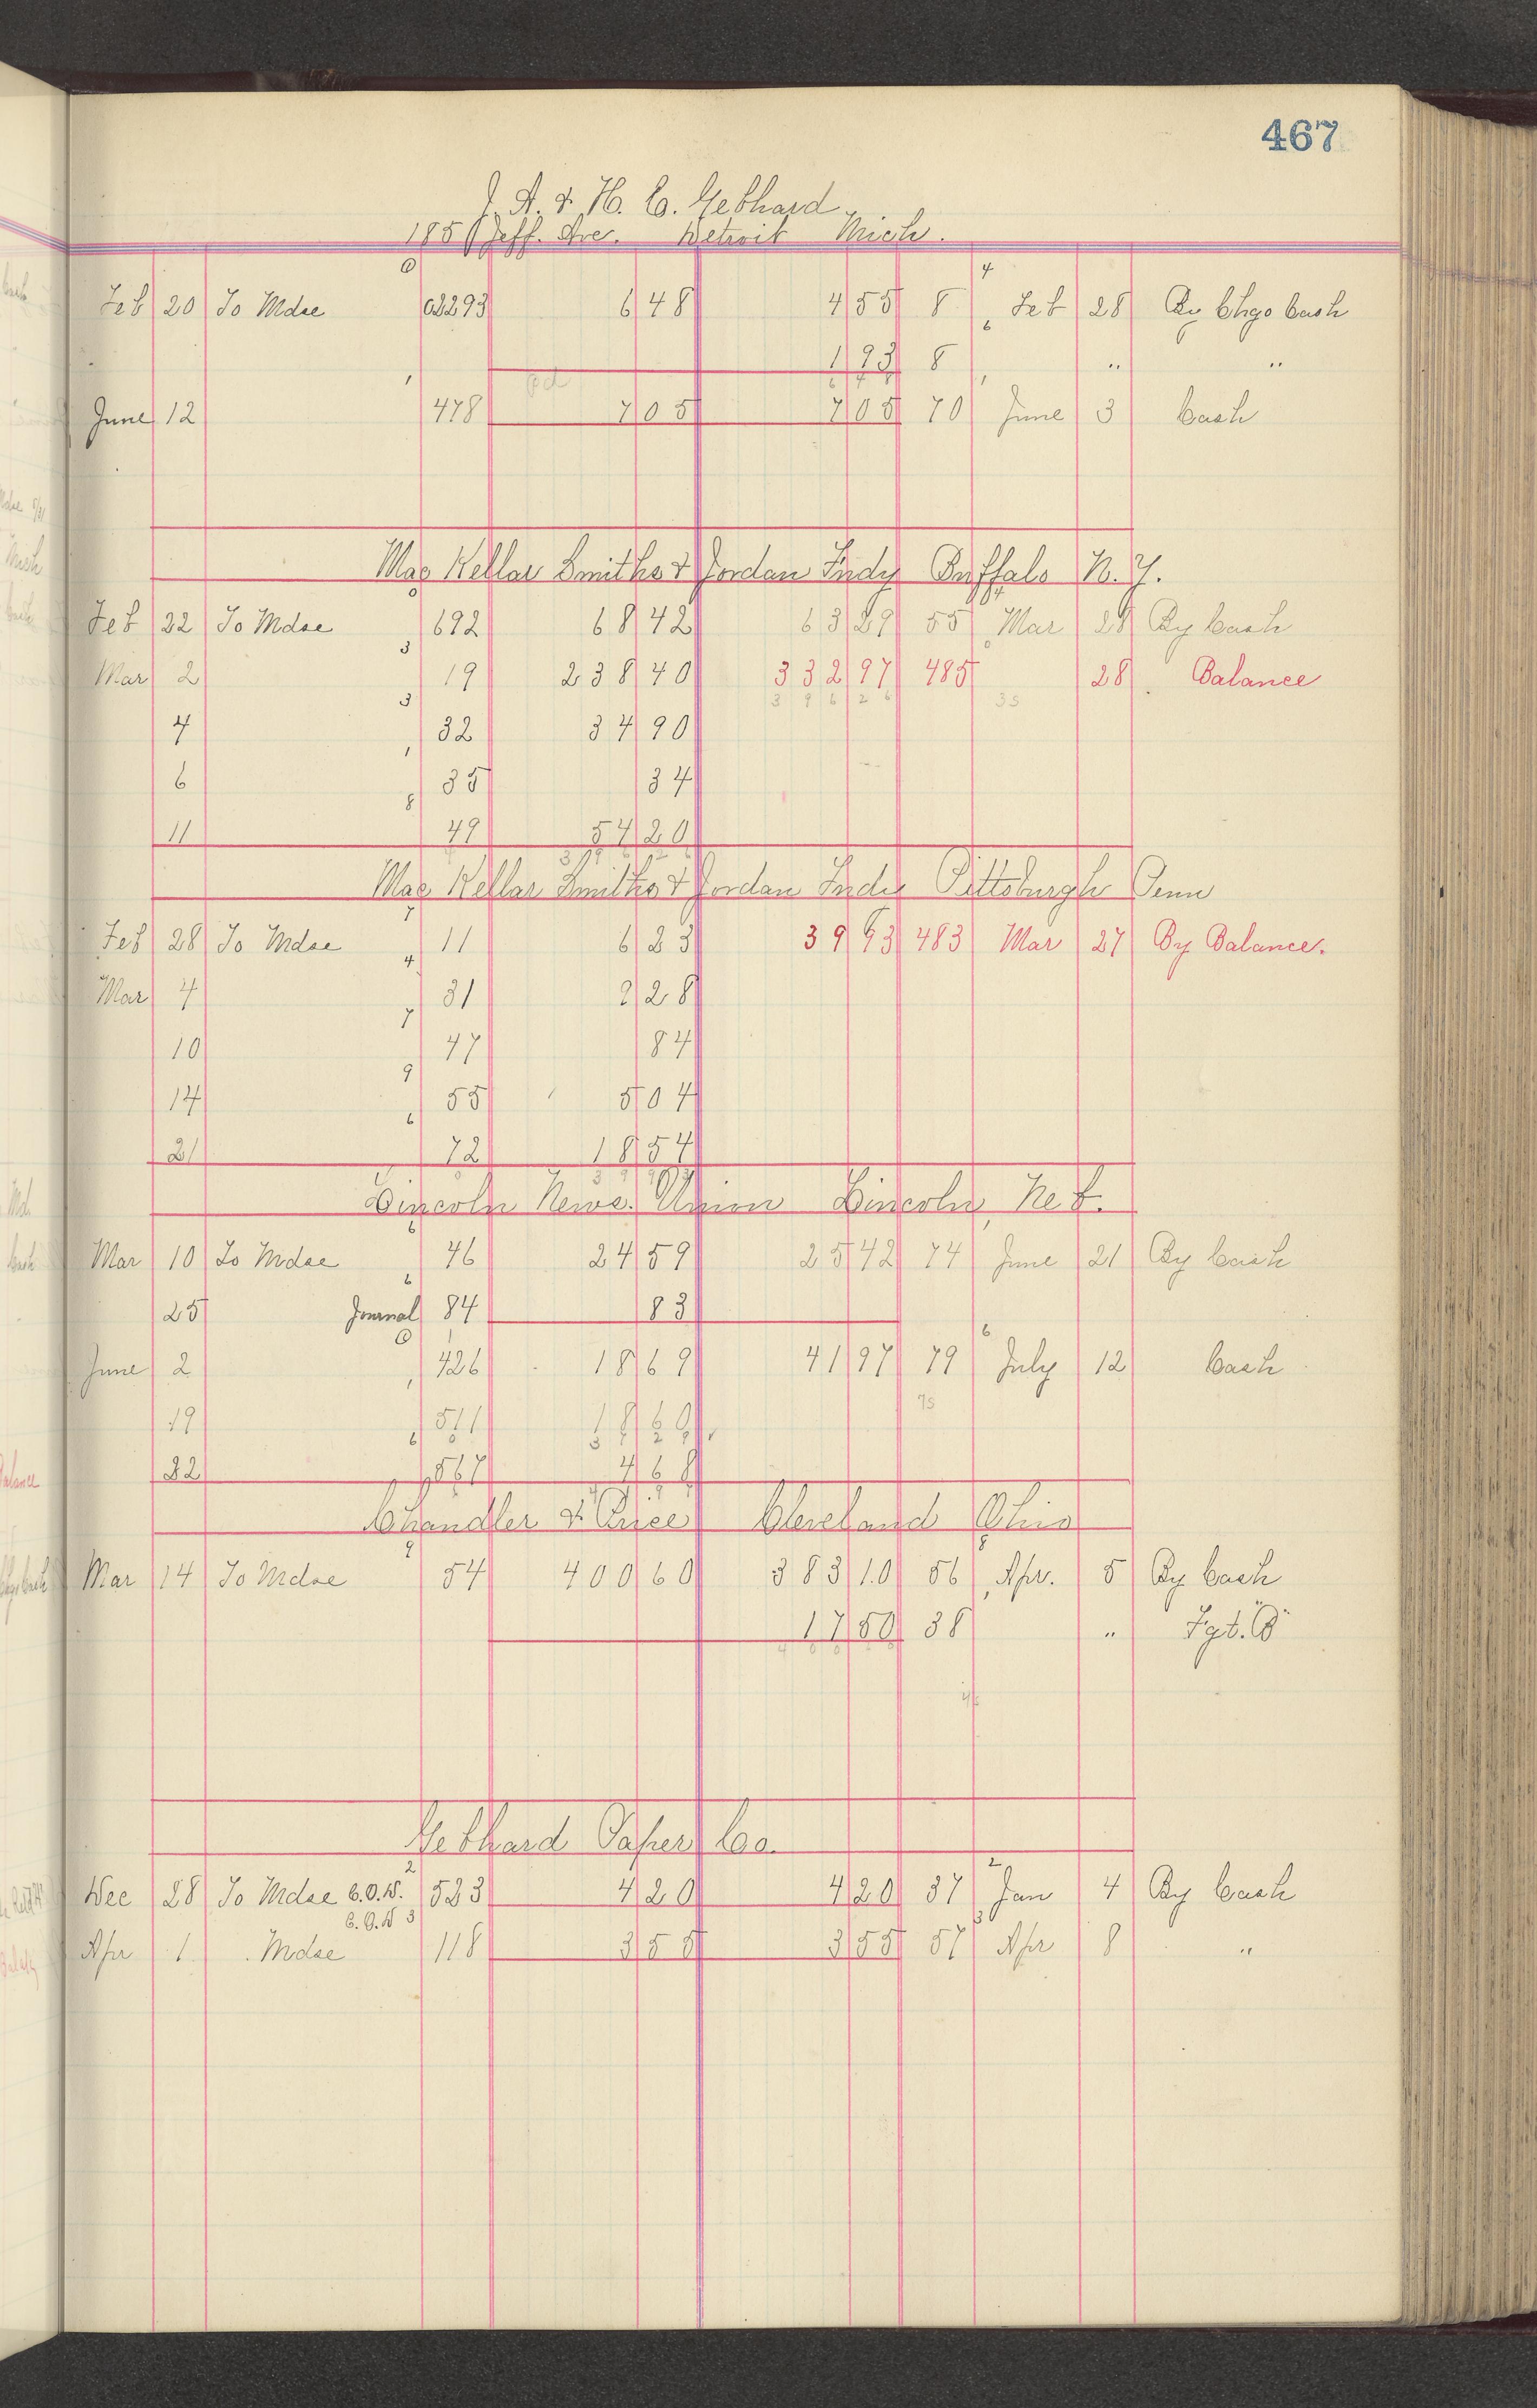 467
J. A. & H. C. Gebhard
185 Jeff. Ave. Detroit Mich.
Feb 20 To Mdse 6 48 4 55 8 Feb 28 By Chgo Cash
1 93 8 " "
June 12 478 7 05 7 05 70 June 3 Cash
Mac Kellar Smiths & Jordan Fndy Buffalo N.Y.
Feb 22 To Mdse 692 68 42 63 29 55 Mar 28 By Cash
Mar 2 19 238 40 332 97 485 28 Balance
396 26
4 32 34 90
6 35 34
11 49 54 20
Mac Kellar Smiths & Jordan Fndy Pittsburgh Penn
Feb 28 To Mdse 11 6 23 39 93 483 Mar 27 By Balance.
Mar 4 31 9 28
10 47 84
14 55 5 04
21 72 18 54
Lincoln News. Union Lincoln, Neb.
Mar 10 To Mdse 46 24 59 25 42 74 June 21 By Cash
25 Journal 84 83
June 2 426 18 69 41 97 79 July 12 Cash
19 511 18 60
22 567 4 68
Chandler & Price Cleveland Ohio
Mar 14 To Mdse 54 400 60 383 10 56 Apr. 5 By Cash
17 50 38 " Fgt. "B"
Gebhard Paper Co.
Dec 28 To Mdse C.O.D. 523 4 20 4 20 37 Jan 4 By Cash
C.O.D
Apr 1 Mdse 118 3 55 3 55 57 Apr 8 "